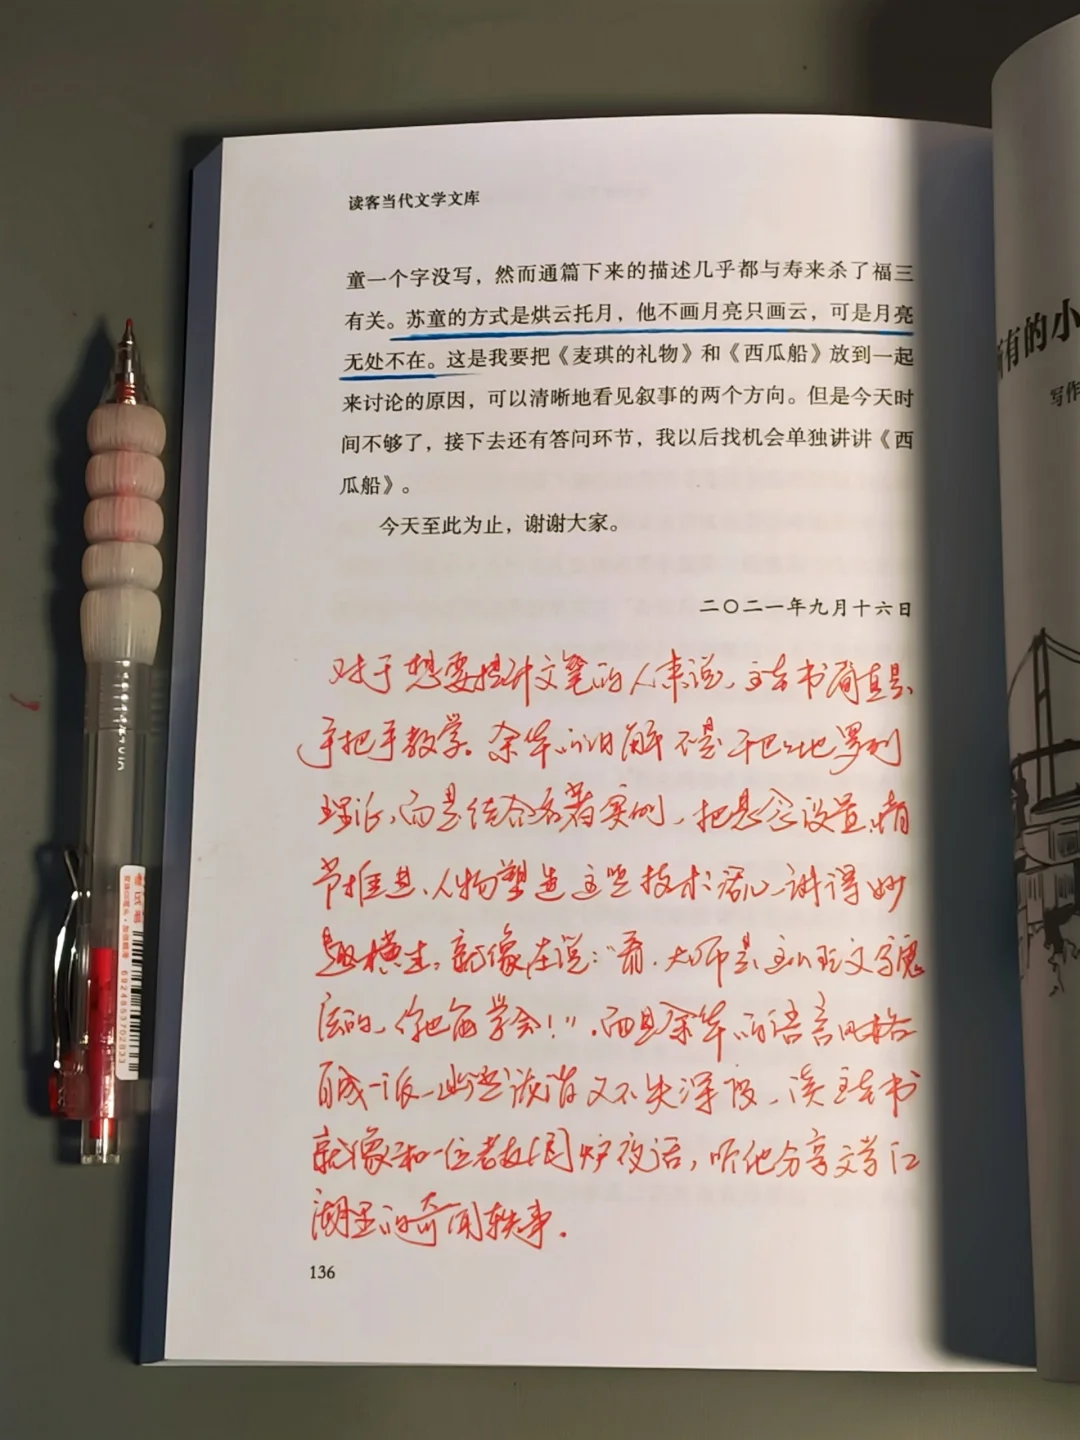 读客当代文学文库
童一个字没写，然而通篇下来的描述几乎都与寿来杀了福三
有关。苏童的方式是烘云托月，他不画月亮只画云，可是月亮
无处不在。这是我要把《麦琪的礼物》和《西瓜船》放到一起
来讨论的原因，可以清晰地看见叙事的两个方向。但是今天时
间不够了，接下去还有答问环节，我以后找机会单独讲讲《西
瓜船》。
今天至此为止，谢谢大家。
二〇二一年九月十六日
对于想要提升文笔的人来说，这本书简直是
手把手教学。余华的讲解不是干巴巴地罗列
理论，而是结合名著实例，把悬念设置、情
节推进、人物塑造这些技术核心讲得妙
趣横生，就像在说：“看，大师是这么玩文字魔
法的，你也能学会！”。而且余华的语言风格
自成一派，幽默诙谐又不失深度，读这本书
就像和一位老友围炉夜话，听他分享文学江
湖里的奇闻轶事。
136
所有的小
写作
6924865702833